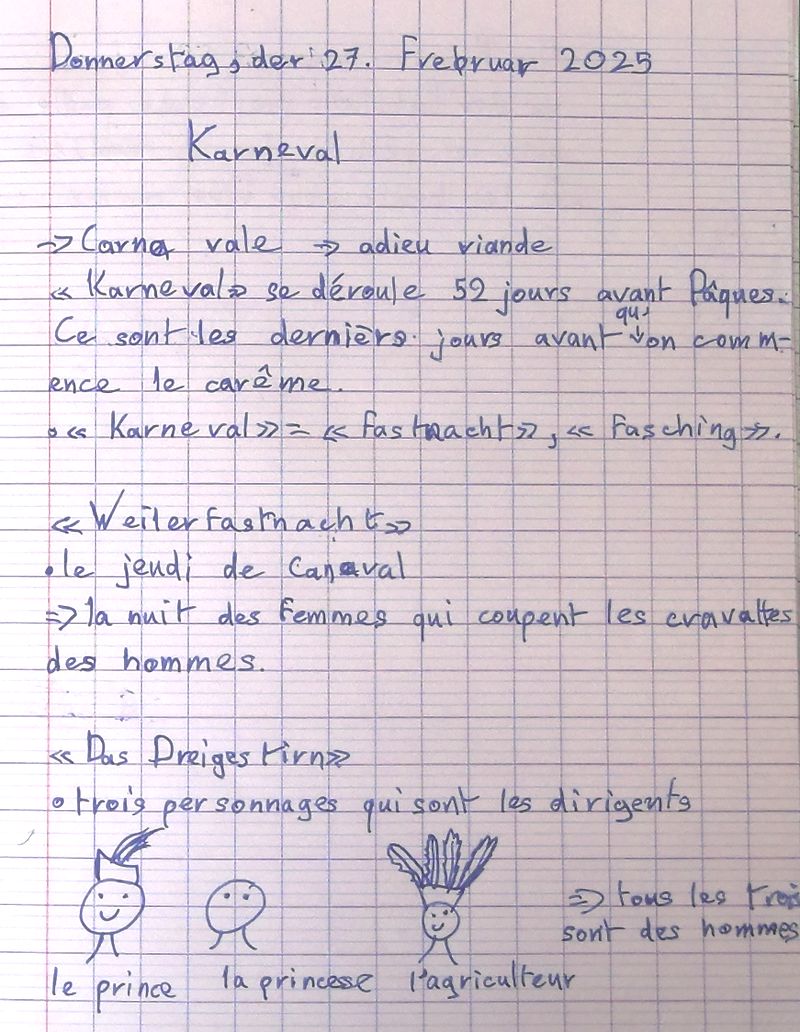 Donnerstag, der 27. Frebruar 2025
Karneval
→ Carna vale → adieu viande
« Karneval» se déroule 52 jours avant Pâques.
Ce sont les dernièrs jours avant qu' on comm-
ence le carême.
• « Karneval» = « Fastnacht», « Fasching».
« Weiterfastnacht»
• le jeudi de Canaval
=> la nuit des femmes qui coupent les cravattes
des hommes.
« Das Dreigestirn»
• trois personnages qui sont les dirigents
=> tous les trois
sont des hommes
le prince la princesse l'agriculteur